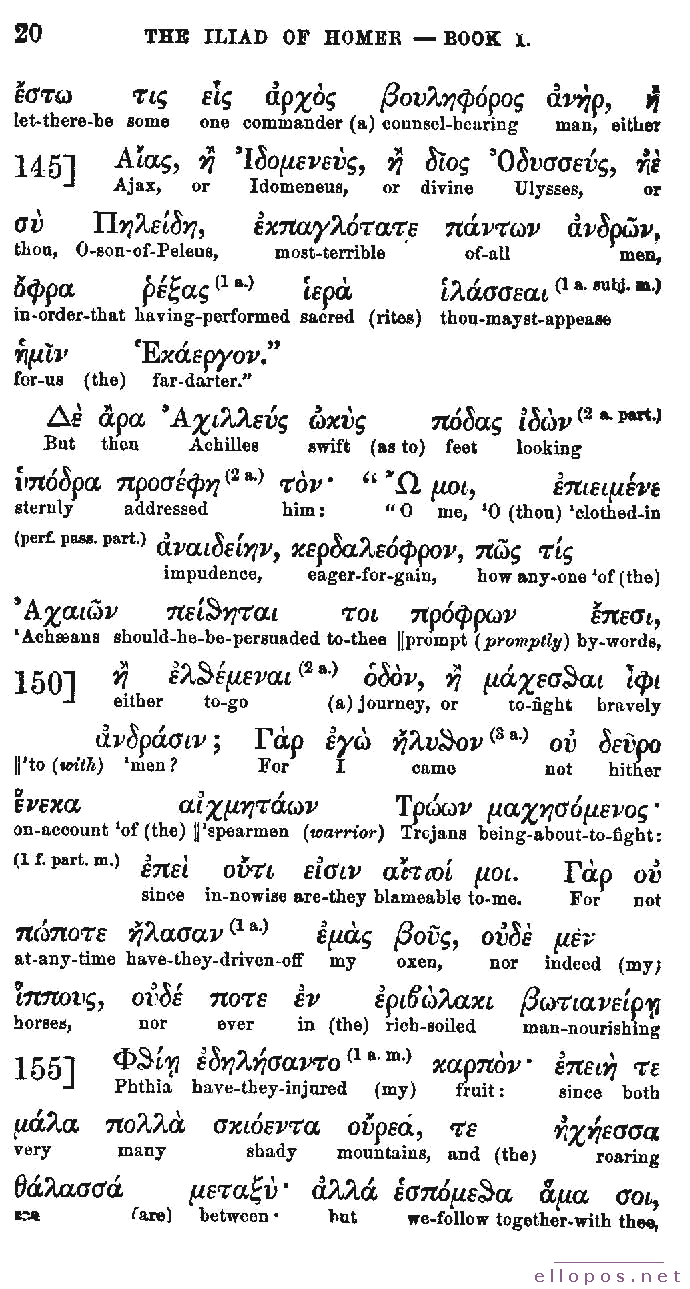 20 THE ILIAD OF HOMER — BOOK I.
ἔστω τις εἷς ἀρχὸς βουληφόρος ἀνὴρ, ἢ
let-there-be some one commander (a) counsel-bearing man, either
145] Αἴας, ἢ Ἰδομενεὺς, ἢ δῖος Ὀδυσσεύς, ἠὲ
Ajax, or Idomeneus, or divine Ulysses, or
σὺ Πηλείδη, ἐκπαγλότατε πάντων ἀνδρῶν,
thou, O-son-of-Peleus, most-terrible of-all men,
ὄφρα ῥέξας (1 a.) ἱερὰ ἱλάσσεαι (1 a. subj. m.)
in-order-that having-performed sacred (rites) thou-mayst-appease
ἡμῖν Ἑκάεργον.”
for-us (the) far-darter.”
Δὲ ἄρα Ἀχιλλεύς ὠκὺς πόδας ἰδὼν (2 a. part.)
But then Achilles swift (as to) feet looking
ὑπόδρα προσέφη (2 a.) τὸν· “ Ὤ μοι, ἐπιειμένε
sternly addressed him: “O me, ‘O (thou) ‘clothed-in
(perf. pass. part.) ἀναιδείην, κερδαλεόφρον, πῶς τίς
impudence, eager-for-gain, how any-one ‘of (the)
Ἀχαιῶν πείθηται τοι πρόφρων ἔπεσι,
‘Achæans should-he-be-persuaded to-thee ||prompt (promptly) by-words,
150] ἢ ἐλθέμεναι (2 a.) ὁδὸν, ἢ μάχεσθαι ἶφι
either to-go (a) journey, or to-fight bravely
ἀνδράσιν; Γὰρ ἐγὼ ἤλυθον (3 a.) οὐ δεῦρο
||‘to (with) ‘men? For I came not hither
ἕνεκα αἰχμητάων Τρώων μαχησόμενος·
on-account ‘of (the) ||‘spearmen (warrior) Trojans being-about-to-fight:
(1 f. part. m.) ἐπεὶ οὔτι εἰσιν αἴτιοί μοι. Γὰρ οὐ
since in-nowise are-they blameable to-me. For not
πώποτε ἤλασαν (1 a.) ἐμὰς βοῦς, οὐδὲ μὲν
at-any-time have-they-driven-off my oxen, nor indeed (my)
ἵππους, οὐδέ ποτε ἐν ἐριβώλακι βωτιανείρῃ
horses, nor ever in (the) rich-soiled man-nourishing
155] Φθίῃ ἐδηλήσαντο (1 a. m.) καρπὸν· ἐπειὴ τε
Phthia have-they-injured (my) fruit: since both
μάλα πολλὰ σκιόεντα οὔρεά, τε ἠχήεσσα
very many shady mountains, and (the) roaring
θάλασσά μεταξὺ· ἀλλά ἑσπόμεθα ἅμα σοι,
sea (are) between· but we-follow together-with thee,
ellopos.net